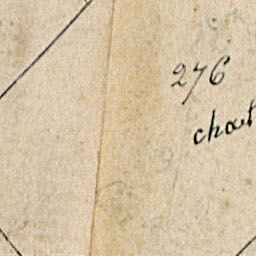 276
chat